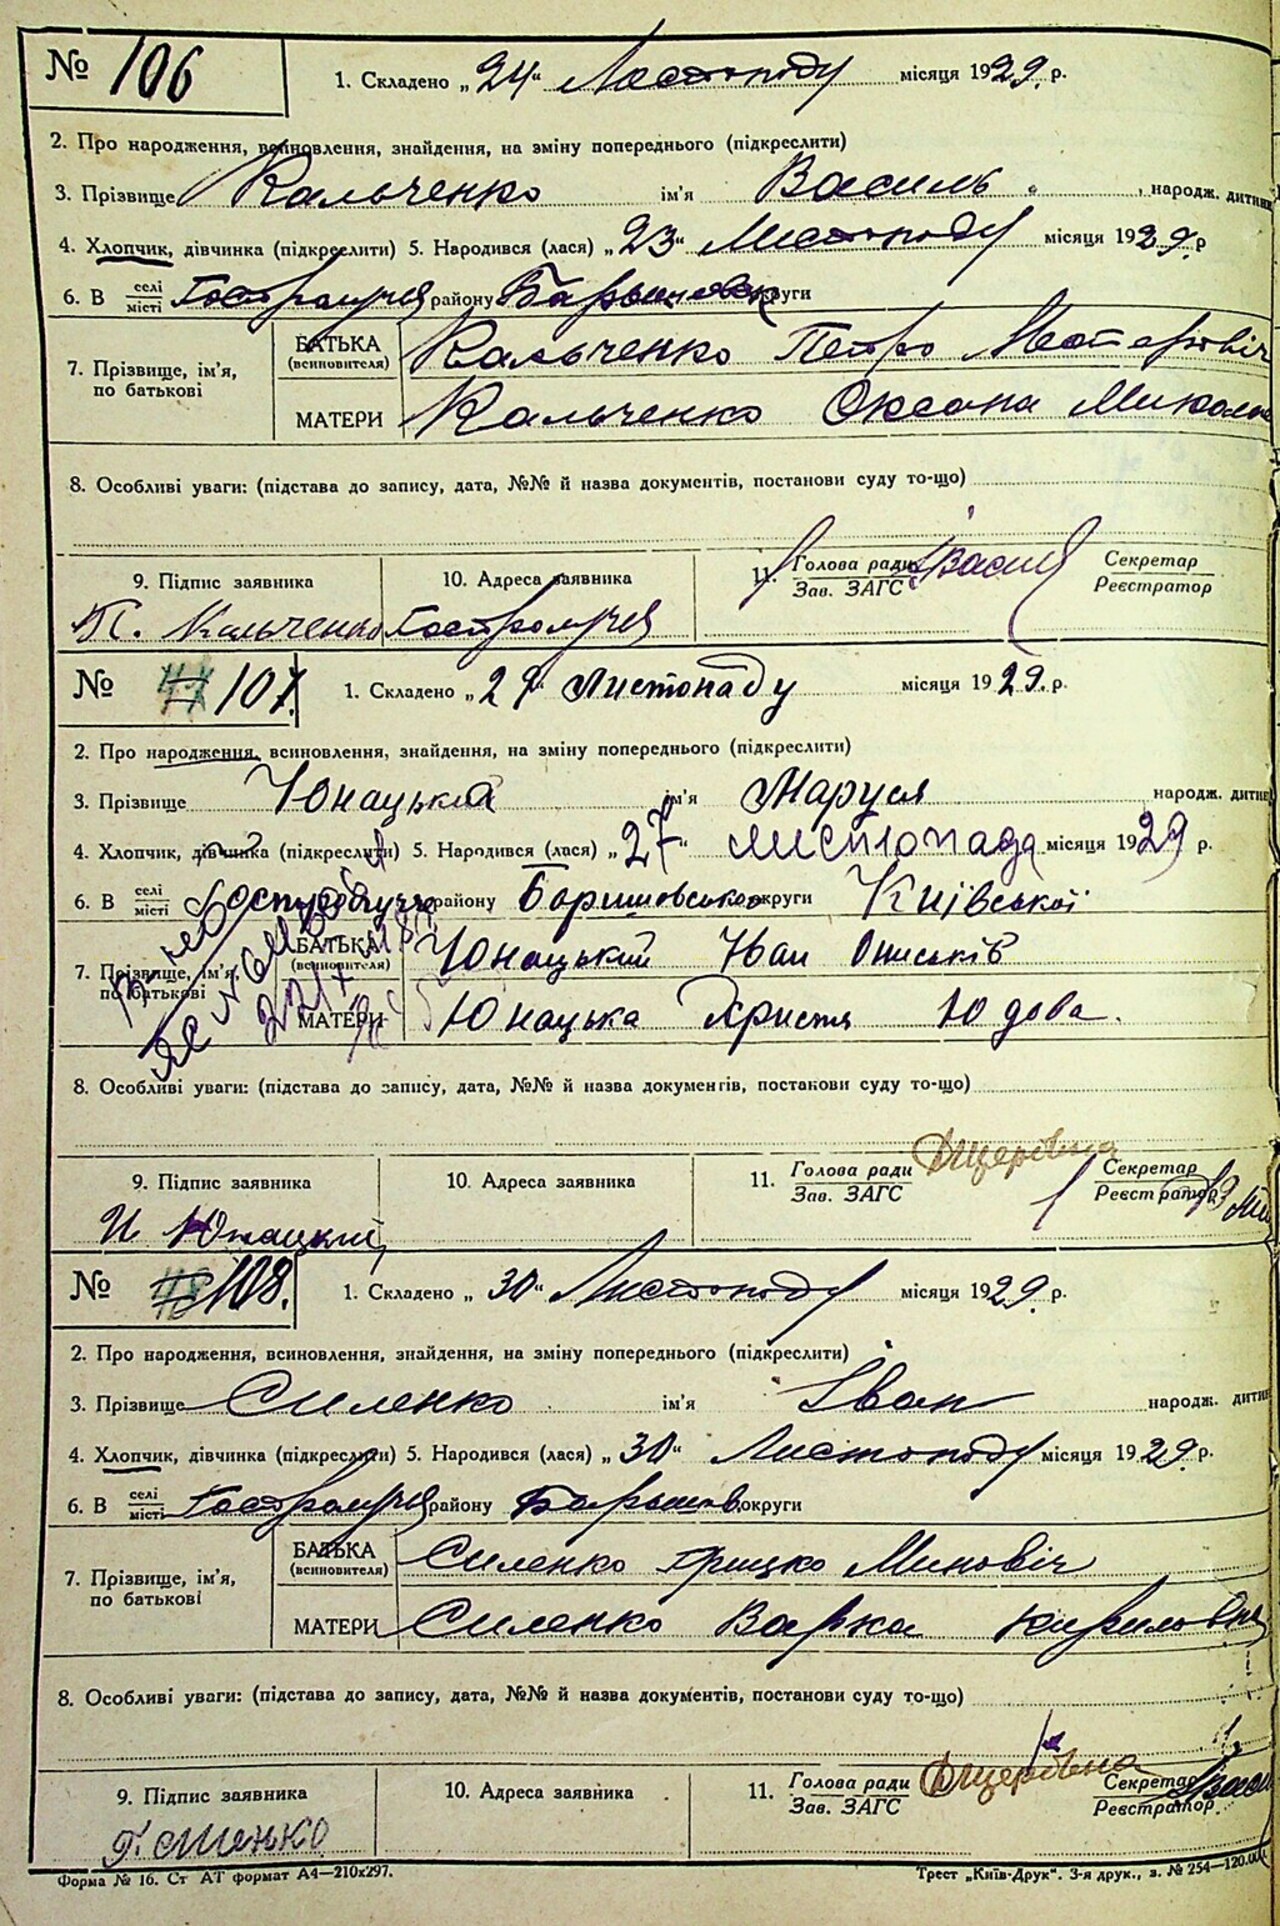 № 106
1. Складено „24“ Листопаду місяця 1929. р.
2. Про народження, всиновлення, знайдення, на зміну попереднього (підкреслити)
3. Прізвище Кальченко ім'я Василь народж. дитини
4. Хлопчик, дівчинка (підкреслити) 5. Народився (лася) „23“ Листопаду місяця 1929. р
6. В селі місті району округи
7. Прізвище, ім'я, по батькові
БАТЬКА (всиновителя) Кальченко Петро
МАТЕРИ Кальченко Оксана
8. Особливі уваги: (підстава до запису, дата, №№ й назва документів, постанови суду то-що)
9. Підпис заявника 10. Адреса заявника 11. Голова ради Зав. ЗАГС Секретар Реєстратор
П. Кальченко
№ 107.
1. Складено „27“ Листопаду місяця 1929. р.
2. Про народження, всиновлення, знайдення, на зміну попереднього (підкреслити)
3. Прізвище Юнацька ім'я Маруся народж. дитин
4. Хлопчик, дівчинка (підкреслити) 5. Народився (лася) „27“ листопада місяця 1929 р.
6. В селі місті району округи Київської
7. Прізвище, ім'я, по батькові
БАТЬКА (всиновителя) Юнацький Иван
МАТЕРИ Юнацька Христя Юдова.
8. Особливі уваги: (підстава до запису, дата, №№ й назва документів, постанови суду то-що)
9. Підпис заявника 10. Адреса заявника 11. Голова ради Зав. ЗАГС Секретар Реєстратор
И Юнацкий
№ 108.
1. Складено „30“ Листопаду місяця 1929. р.
2. Про народження, всиновлення, знайдення, на зміну попереднього (підкреслити)
3. Прізвище Силенко ім'я Іван народж. дитин
4. Хлопчик, дівчинка (підкреслити) 5. Народився (лася) „30“ Листопаду місяця 1929. р.
6. В селі місті району округи
7. Прізвище, ім'я, по батькові
БАТЬКА (всиновителя) Силенко Грицко Минович
МАТЕРИ Силенко Варка Кириловна
8. Особливі уваги: (підстава до запису, дата, №№ й назва документів, постанови суду то-що)
9. Підпис заявника 10. Адреса заявника 11. Голова ради Зав. ЗАГС Секретар Реєстратор
Форма № 16. Ст АТ формат А4—210х297.
Трест „Київ-Друк“. 3-я друк., з. № 254—120.000